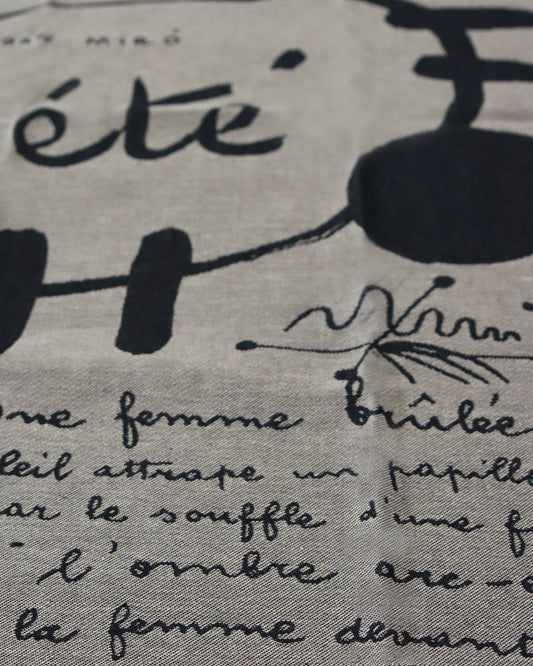 miró
été
une femme brûlée
leil attrape un papillo
ar le souffle d'une f
l'ombre arc-e
la femme devant